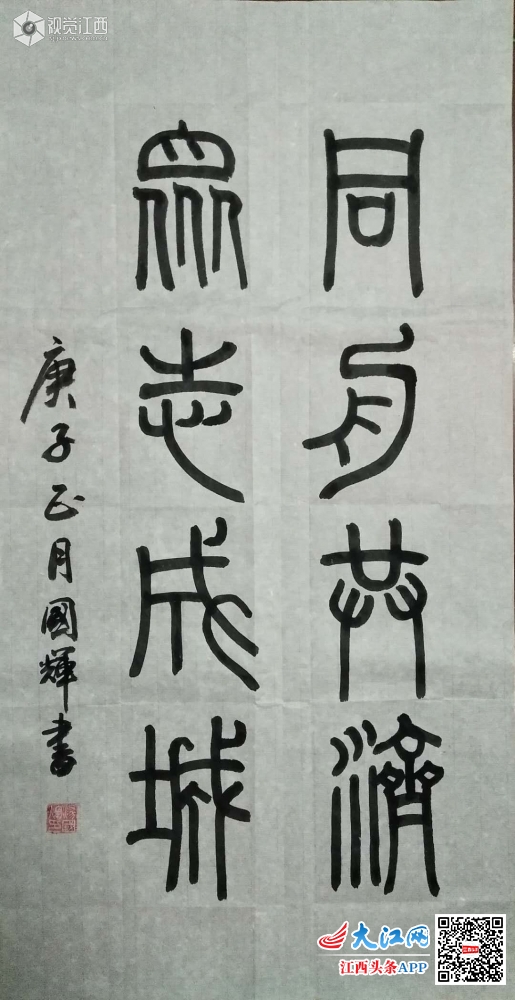 同舟共濟
眾志成城
庚子正月國輝書
视觉江西
大江网
江西头条APP